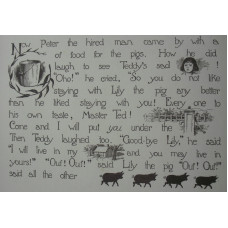 Now Peter the hired man came by with a
of food for the pigs. How he did
laugh to see Teddy's sad !
"Oho!" he cried, So you do not like
staying with Lily the pig any better
than he liked staying with you! Every one to
his own taste, Master Ted!
Come and I will put you under the
Then Teddy laughed too, "Good-bye Lily," he said
"I will live in my and you may live in
yours!" "Ouf! Ouf!" said Lily the pig "Ouf! Ouf!"
said all the other